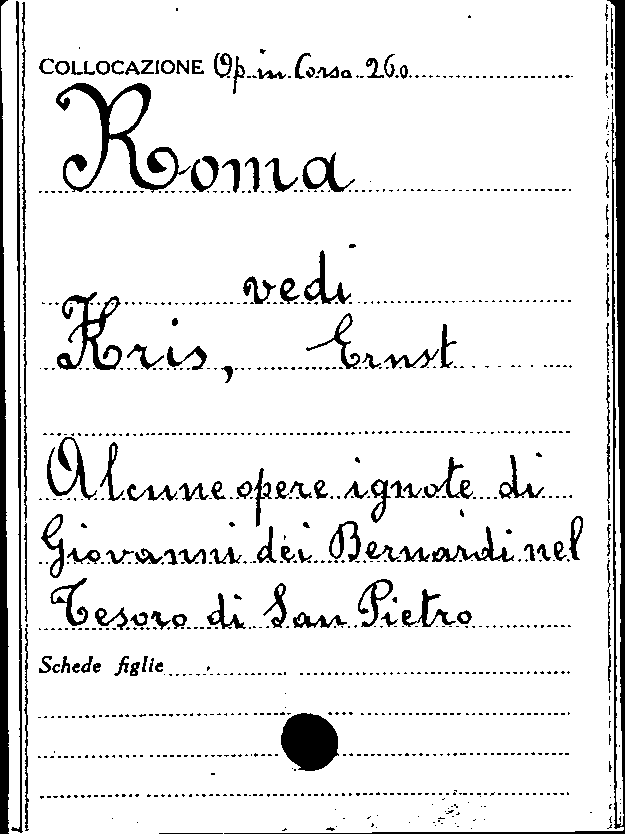 COLLOCAZIONE Op. in Corso 260
Roma
vedi
Kris, Ernst
Alcune opere ignote di
Giovanni dei Bernardi nel
Tesoro di San Pietro
Schede figlie